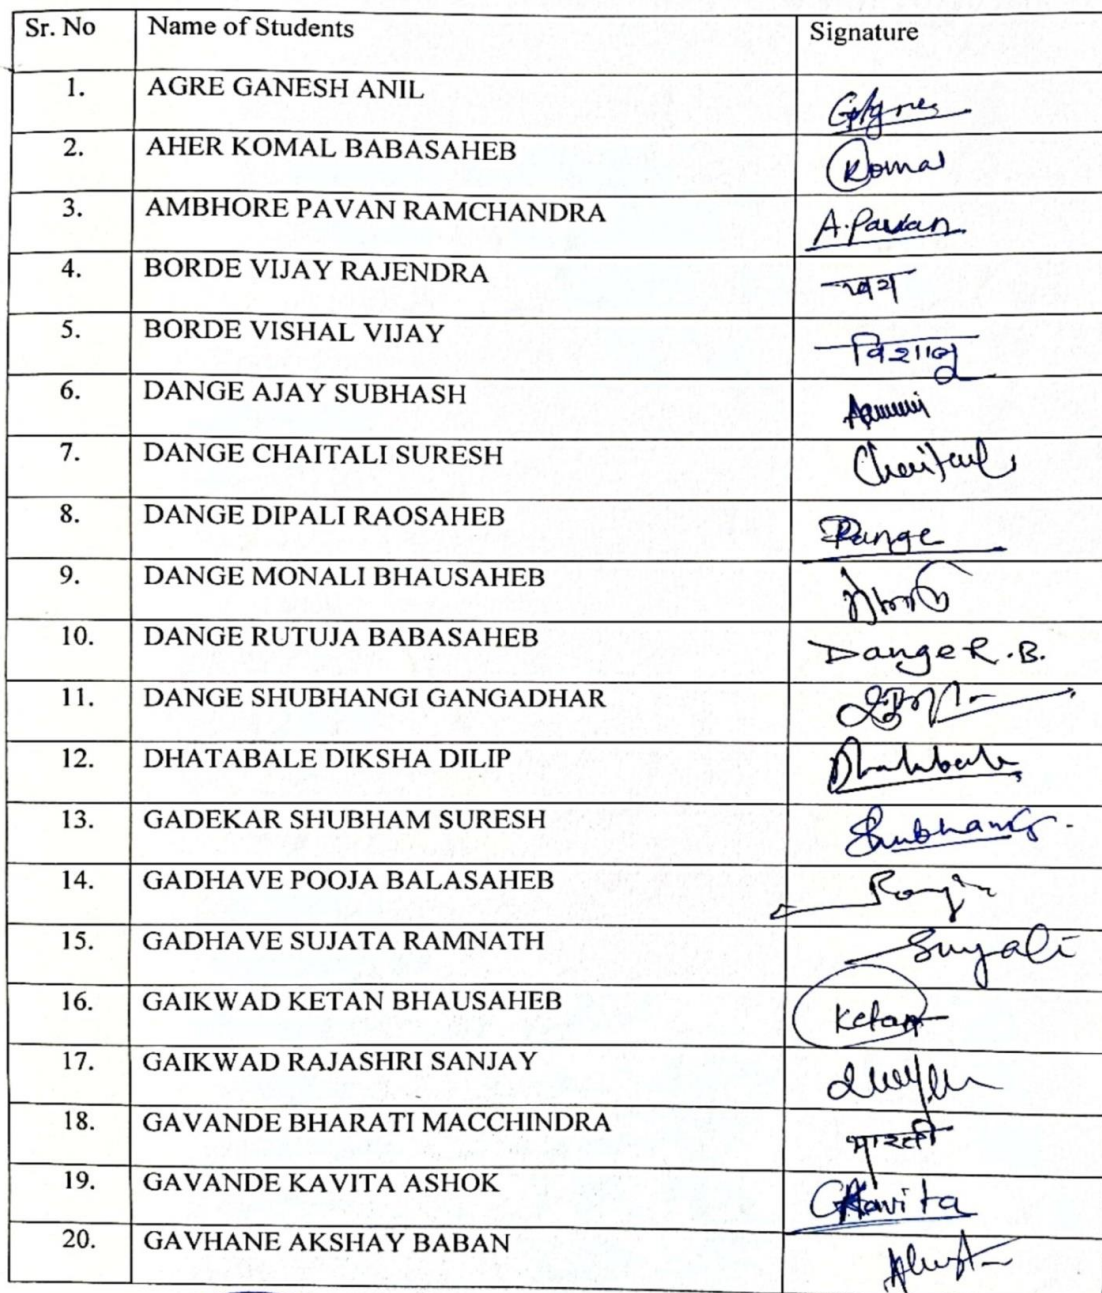 Sr. No Name of Students Signature
1. AGRE GANESH ANIL
2. AHER KOMAL BABASAHEB Komal
3. AMBHORE PAVAN RAMCHANDRA A.Pavan
4. BORDE VIJAY RAJENDRA
5. BORDE VISHAL VIJAY विशाल
6. DANGE AJAY SUBHASH
7. DANGE CHAITALI SURESH Chaitali
8. DANGE DIPALI RAOSAHEB Dange
9. DANGE MONALI BHAUSAHEB
10. DANGE RUTUJA BABASAHEB Dange R.B.
11. DANGE SHUBHANGI GANGADHAR
12. DHATABALE DIKSHA DILIP
13. GADEKAR SHUBHAM SURESH
14. GADHAVE POOJA BALASAHEB
15. GADHAVE SUJATA RAMNATH
16. GAIKWAD KETAN BHAUSAHEB Ketan
17. GAIKWAD RAJASHRI SANJAY
18. GAVANDE BHARATI MACCHINDRA भारती
19. GAVANDE KAVITA ASHOK GKavita
20. GAVHANE AKSHAY BABAN